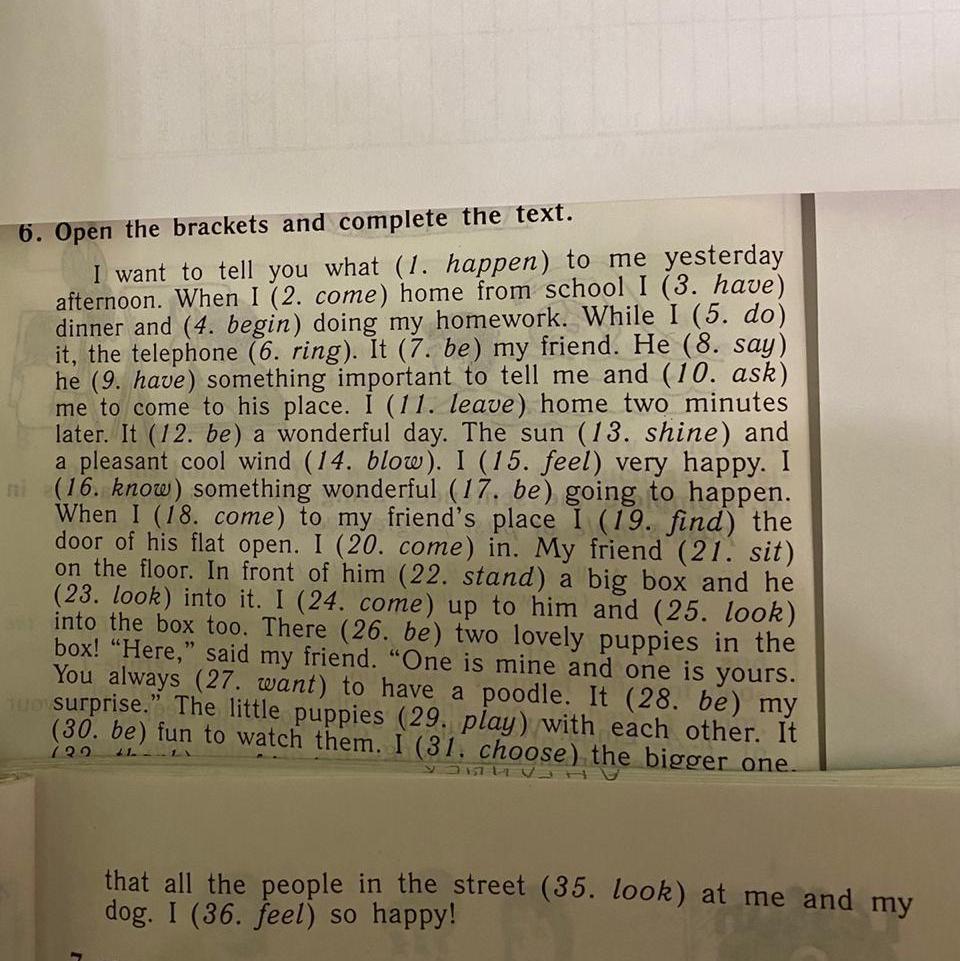 6. Open the brackets and complete the text.
I want to tell you what (1. happen) to me yesterday
afternoon. When I (2. come) home from school I (3. have)
dinner and (4. begin) doing my homework. While I (5. do)
it, the telephone (6. ring). It (7. be) my friend. He (8. say)
he (9. have) something important to tell me and (10. ask)
me to come to his place. I (11. leave) home two minutes
later. It (12. be) a wonderful day. The sun (13. shine) and
a pleasant cool wind (14. blow). I (15. feel) very happy. I
(16. know) something wonderful (17. be) going to happen.
When I (18. come) to my friend's place I (19. find) the
door of his flat open. I (20. come) in. My friend (21. sit)
on the floor. In front of him (22. stand) a big box and he
(23. look) into it. I (24. come) up to him and (25. look)
into the box too. There (26. be) two lovely puppies in the
box! “Here,” said my friend. “One is mine and one is yours.
You always (27. want) to have a poodle. It (28. be) my
surprise.” The little puppies (29. play) with each other. It
(30. be) fun to watch them. I (31. choose) the bigger one.
that all the people in the street (35. look) at me and my
dog. I (36. feel) so happy!